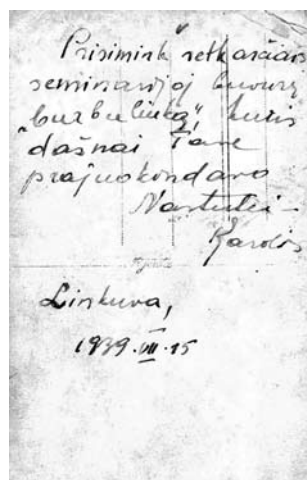 Prisimink retkarčiais
seminarijoj buvusį
„burbuliuką“, kuris
dažnai Tave
prajuokondavo
Nastutei –
Karolis
Linkuva,
1939.VII.15